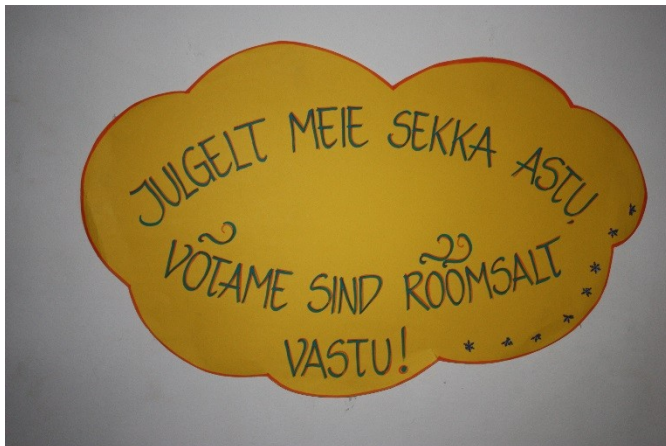 JULGELT MEIE SEKKA ASTU,
VÕTAME SIND RÕÕMSALT
VASTU!